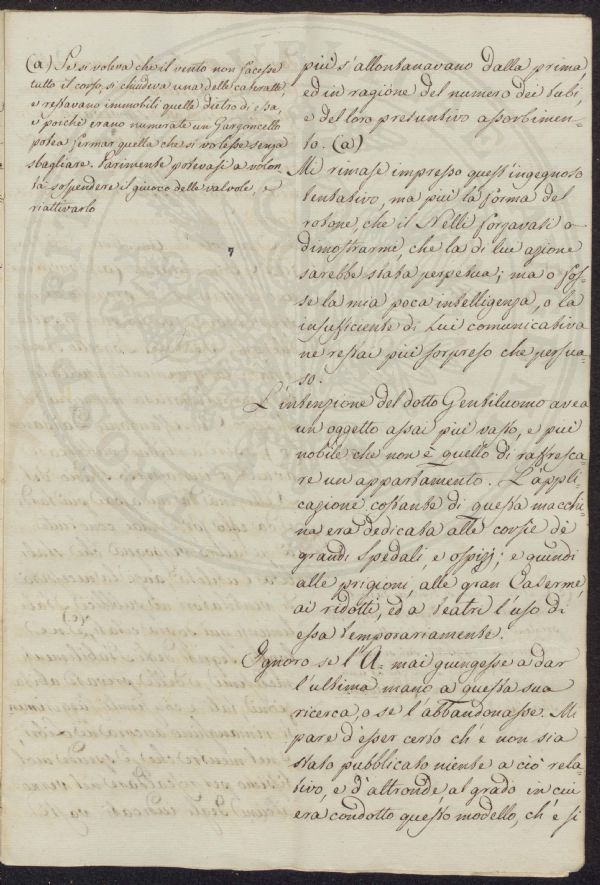 (a) Se si voleva che il vento non facesse
tutto il corso, si chiudeva una delle cateratte,
e restavano immobili quelle dietro di essa,
e poichè erano numerate un Garzoncello
potea fermar quella che si volesse senza
sbagliare. Parimente poteva si a volon-
tà sospendere il giuoco delle valvole, e
riattivarlo
più s'allontanavano dalla prima,
ed in ragione del numero dei tubi,
e del loro presuntivo assorbimen-
to. (a)
Mi rimase impresso quest'ingegnoso
tentativo, ma più la forma del
rotone, che il Nelli forzavasi a
dimostrarmi, che la di lui azione
sarebbe stata perpetua; ma o fos-
se la mia poca intelligenza, o la
insufficiente di Lui comunicativa
ne restai più sorpreso che persua-
so.
L'intenzione del dotto Gentiluomo avea
un oggetto assai più vasto, e più
nobile che non è quello di rinfresca-
re un appartamento. L'appli-
cazione costante di questa macchi-
na era dedicata alle corsie de
grandi Spedali, e ospizj; e quindi
alle prigioni, alle gran Caserme,
ai ridotti, ed a teatri l'uso di
essa temporariamente.
Ignoro se l'A. mai giungesse a dar
l'ultima mano a questa sua
ricerca, o se l'abbandonasse. Mi
pare d'esser certo ch'e non sia
stato pubblicato niente a ciò rela-
tivo, e d'altronde, al grado in cui
era condotto questo modello, ch'e si